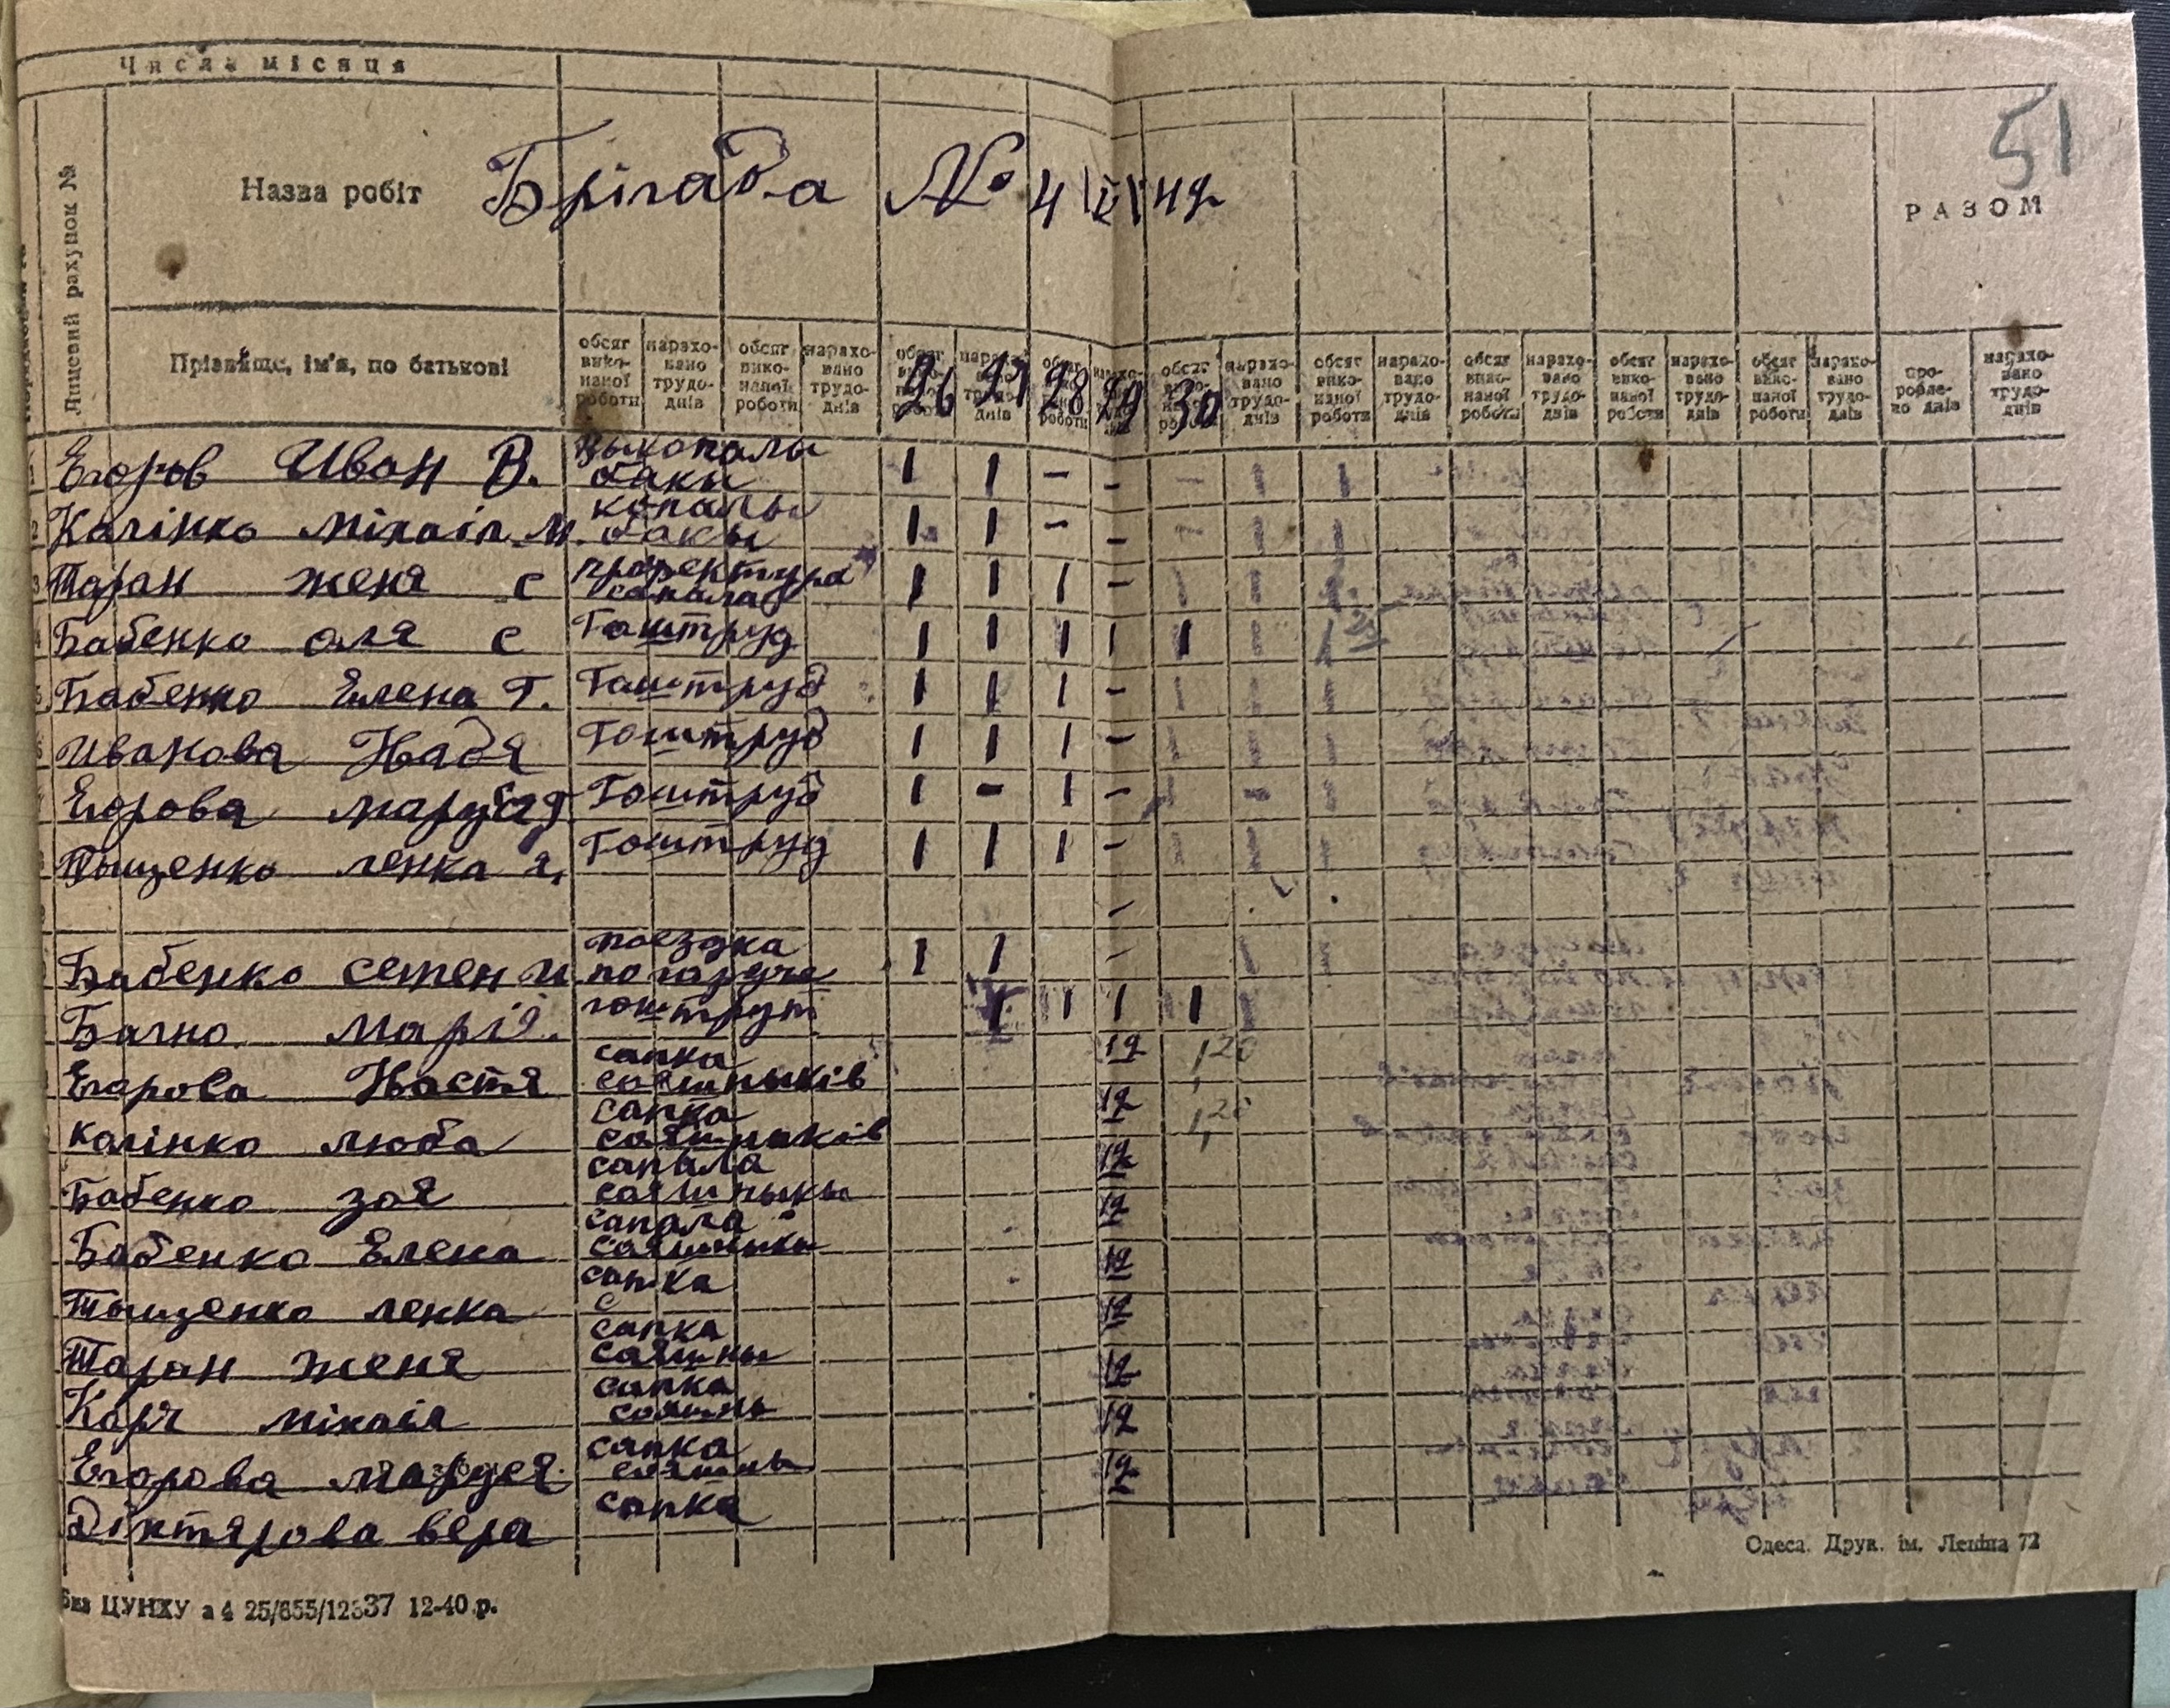 Числа місяця
51
Лицевий рахунок №
Назва робіт
Брігада № 4
РАЗОМ
Прізвище, ім'я, по батькові
обсяг вико-наної роботи нарахо-вано трудо-днів обсяг вико-наної роботи нарахо-вано трудо-днів обсяг вико-наної роботи нарахо-вано трудо-днів обсяг вико-наної роботи нарахо-вано трудо-днів обсяг вико-наної роботи нарахо-вано трудо-днів обсяг вико-наної роботи нарахо-вано трудо-днів обсяг вико-наної роботи нарахо-вано трудо-днів обсяг вико-наної роботи нарахо-вано трудо-днів обсяг вико-наної роботи нарахо-вано трудо-днів про-робле-но днів нарахо-вано трудо-днів
26 27 28 29 30
Егоров Иван В. выкопалы бакы 1 1 - -
Калінко Міхаіл М. копалы бакы 1 1 - -
Таран женя с сапала 1 1 1 -
Бабенко оля с Гоштруд 1 1 1 1 1
Бабенко Елена Г. Гоштруд 1 1 1 -
Иванова Надя Гоштруд 1 1 1 -
Егорова Маруся Гоштруд 1 - 1 -
Тыщенко ленка Гоштруд 1 1 1 -
-
Бабенко семен и поездка 1 1 -
Марія гоштрут 1 1 1 1
Егорова Настя сапка сояшныків 12 1,20
калінко люба сапка сояшныків 12 1,20
Бабенко зоя сапала сояшныкы 12
Бабенко Елена сапала сояшныкы 12
Тыщенко ленка сапка с 12
Таран женя сапка сояшны 12
міхаіл сапка сояшны 12
Егорова Маруся сапка сояшны 12
Діктярова вера сапка 12
ЦУНХУ а 4 25/655/12337 12-40 р.
Одеса. Друк. ім. Леніна 72